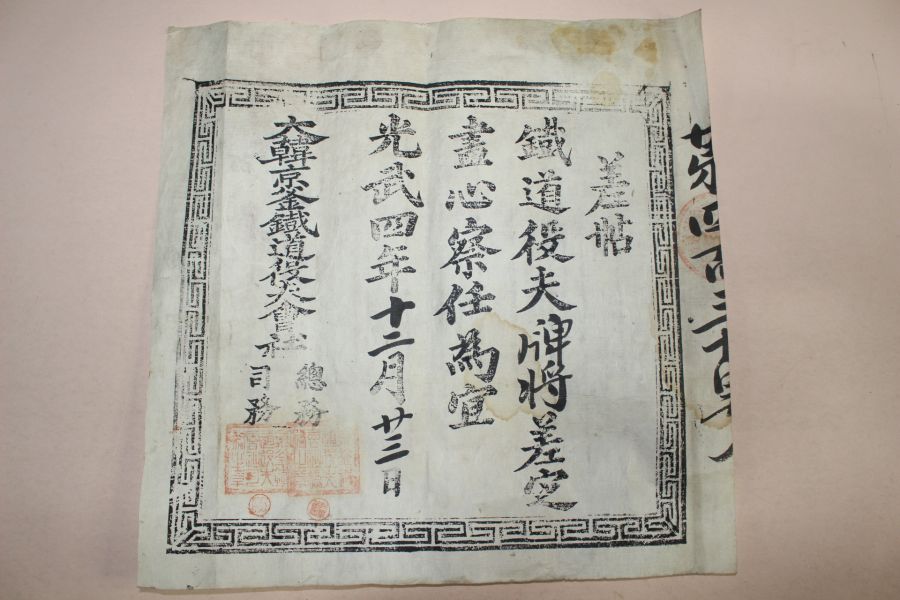 第四百三十
差帖
鐵道役夫牌将差定
盡心察任為宜
光武四年十二月廿三日
大韓京釜鐵道役夫會社
總務
司務